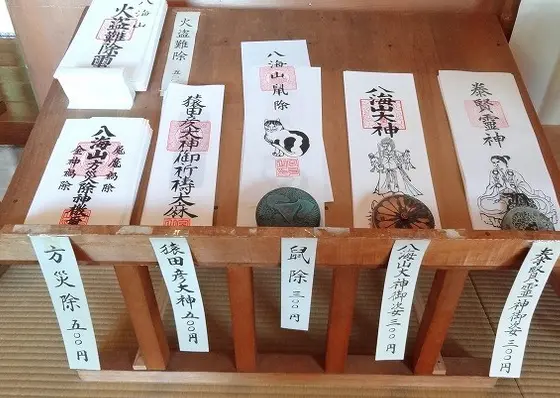 八海山
火盗難除
火盗難除
五〇
八海山方災除神
尾廃禍除
金神禍除
猿田彦大神御祈祷大麻
八海山
八海山鼠除
八海山大神
泰賢霊神
方災除 五〇〇円
猿田彦大神 五〇〇円
鼠除 三〇〇円
八海山大神御姿 三〇〇円
泰賢霊神御姿 三〇〇円